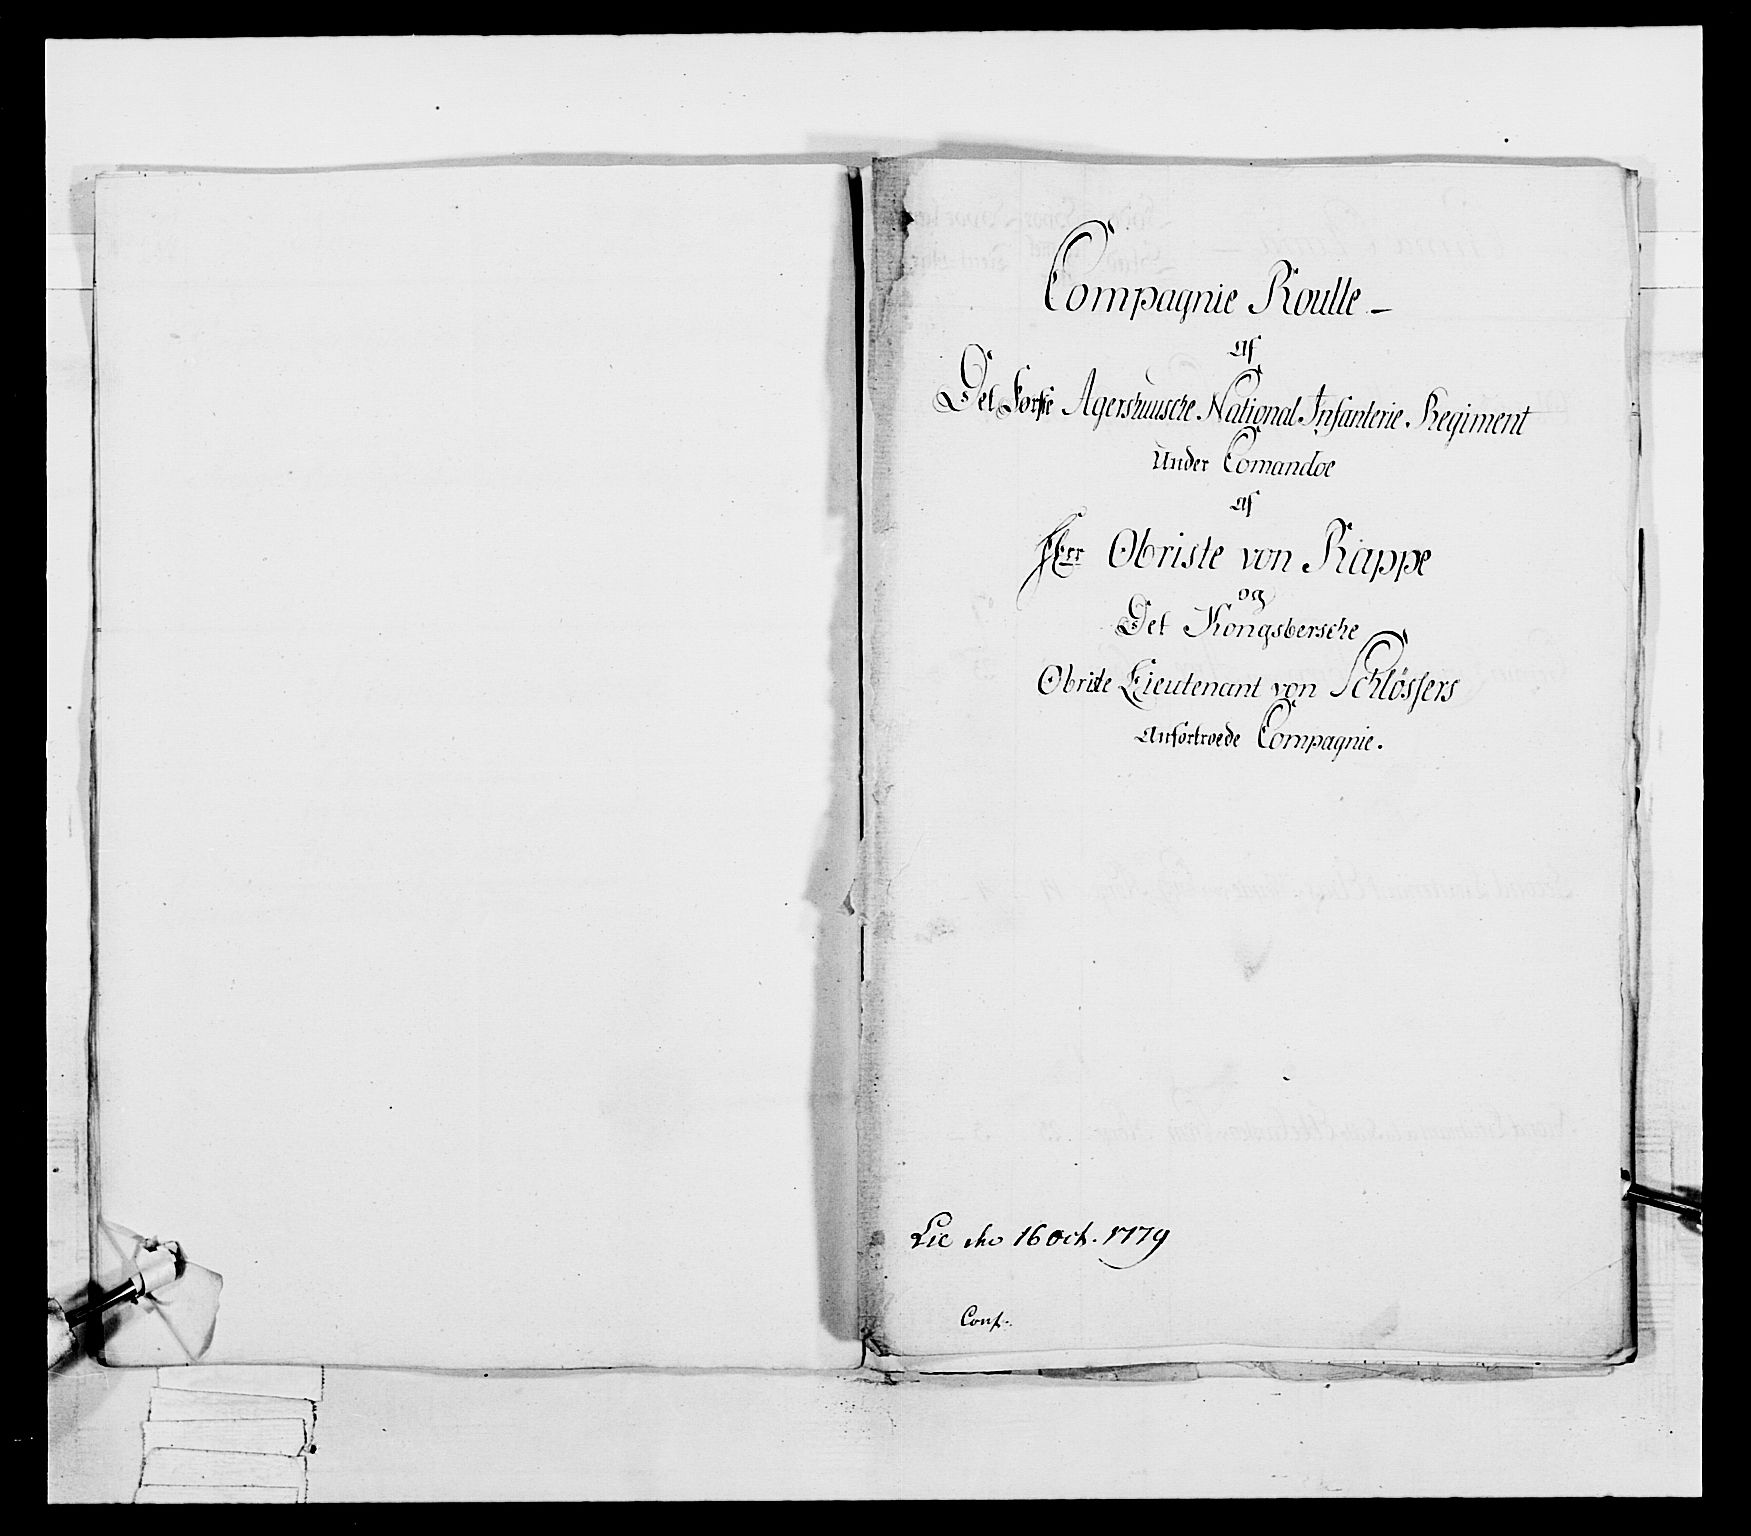 Compagnie Roulle -
Af
Det Første Agershuusche National Infanterie Regiment
Under Comandoe
Af
Herr Obriste von Rappe
og
Det Kongsbersche
Obriste Lieutenant von Schlössers
Anfortroede Compagnie.
16 Oct. 1779
Conf.